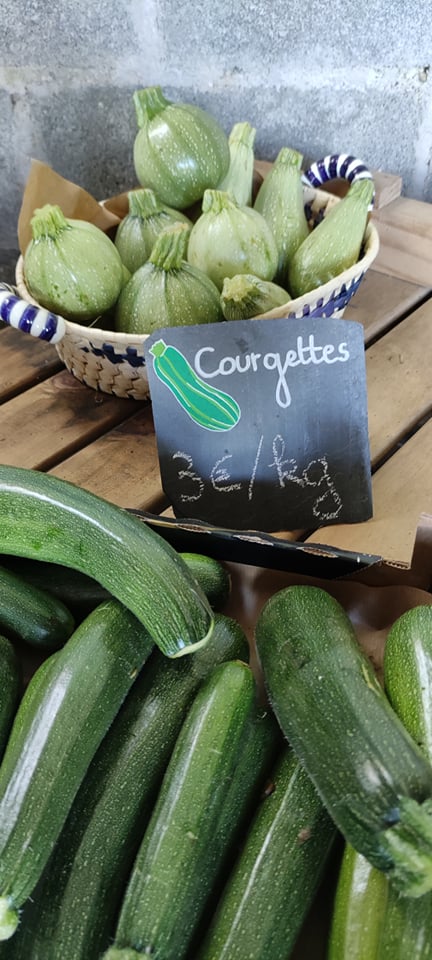 Courgettes
3€/kg